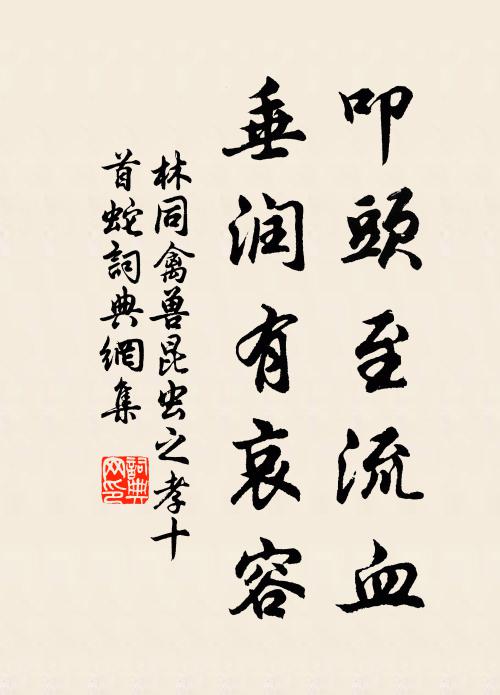 叩頭至流血
垂润有哀容
林同禽兽昆虫之孝十
首蛇詞典網集
詞典
网印